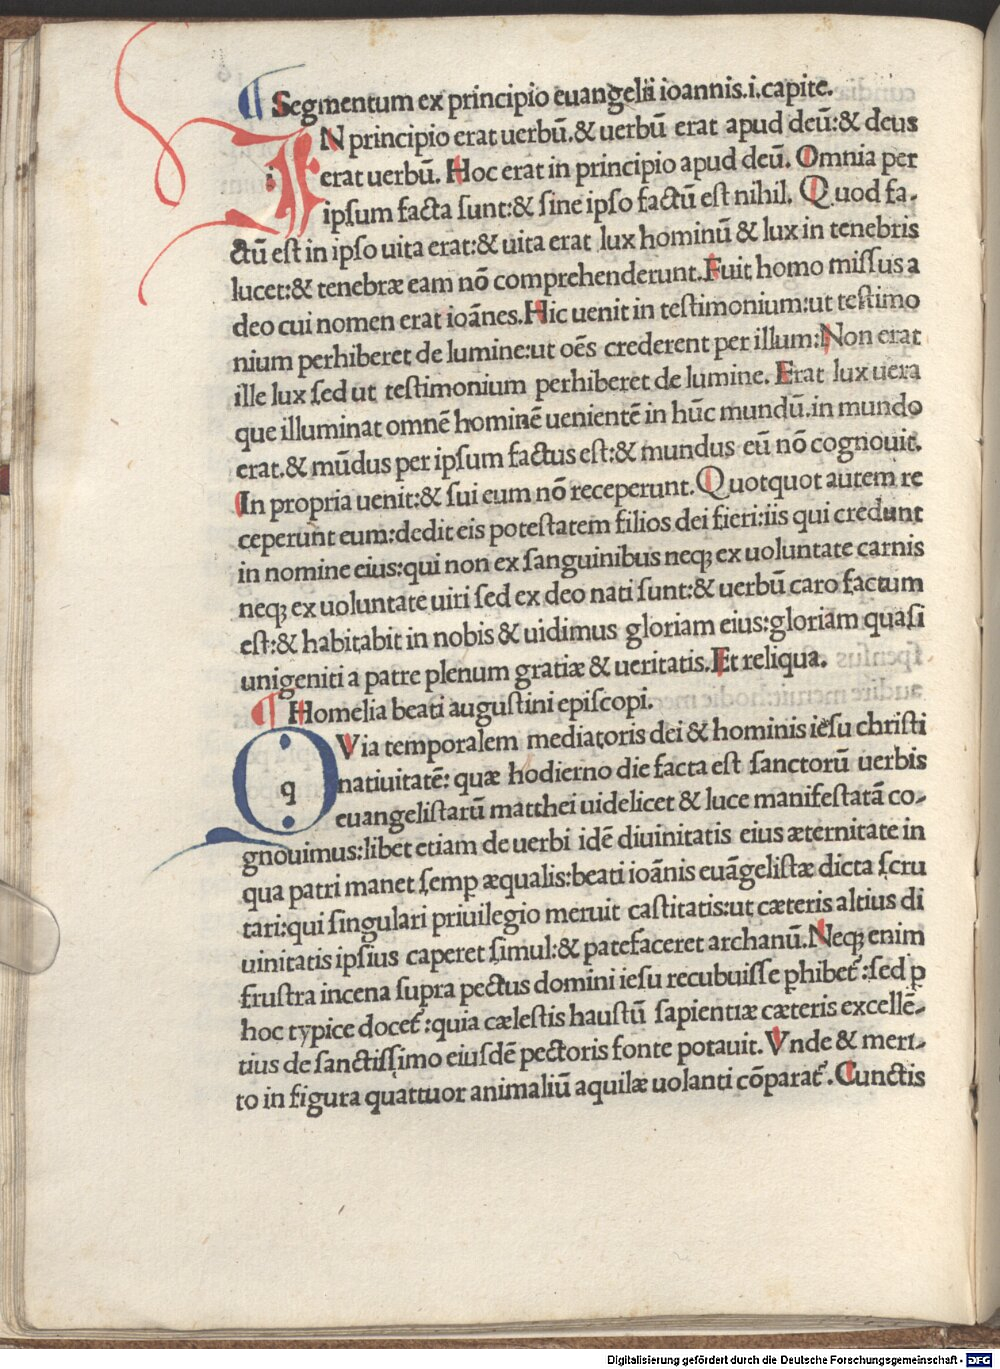 ¶ Segmentum ex principio euangelii ioannis.i.capite.
IN principio erat uerbū.& uerbū erat apud deū:& deus
erat uerbū. Hoc erat in principio apud deū. Omnia per
ipſum facta ſunt:& ſine ipſo factū eſt nihil. Quod fa-
ctū eſt in ipſo uita erat:& uita erat lux hominū & lux in tenebris
lucet:& tenebræ eam nō comprehenderunt.Fuit homo miſſus a
deo cui nomen erat ioānes.Hic uenit in teſtimonium:ut teſtimo
nium perhiberet de lumine:ut oēs crederent per illum:Non erat
ille lux ſed ut teſtimonium perhiberet de lumine. Erat lux uera
que illuminat omnē hominē uenientē in hūc mundū.in mundo
erat.& mūdus per ipſum factus eſt:& mundus eū nō cognouit.
In propria uenit:& ſui eum nō receperunt.Quotquot autem re
ceperunt eum:dedit eis poteſtatem filios dei fieri:iis qui credunt
in nomine eius:qui non ex ſanguinibus neqꝫ ex uoluntate carnis
neqꝫ ex uoluntate uiri ſed ex deo nati ſunt:& uerbū caro factum
eſt:& habitabit in nobis & uidimus gloriam eius:gloriam quaſi
unigeniti a patre plenum gratiæ & ueritatis.Et reliqua.
¶ Homelia beati auguſtini epiſcopi.
QVia temporalem mediatoris dei & hominis ieſu chriſti
natiuitatē: quæ hodierno die facta eſt ſanctorū uerbis
euangeliſtarū matthei uidelicet & luce manifeſtatā co-
gnouimus:libet etiam de uerbi idē diuinitatis eius æternitate in
qua patri manet ſemp æqualis:beati ioānis euāgeliſtæ dicta ſcru
tari:qui ſingulari priuilegio meruit caſtitatis:ut cæteris altius di
uinitatis ipſius caperet ſimul:& patefaceret archanū.Neqꝫ enim
fruſtra incena ſupra pectus domini ieſu recubuiſſe ꝑhibet᷑:ſed ꝑ
hoc typice docet᷑:quia cæleſtis hauſtū ſapientiæ cæteris excellē-
tius de ſanctiſſimo eiuſdē pectoris fonte potauit.Vnde & meri-
to in figura quattuor animaliū aquilæ uolanti cōparat᷑.Cunctis
Digitalisierung gefördert durch die Deutsche Forschungsgemeinschaft - DFG